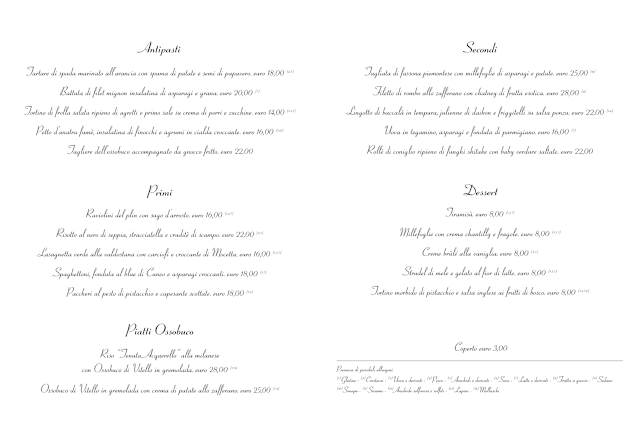 Antipasti
Tartare di spada marinato all'arancia con spuma di patate e semi di papavero, euro 18,00
Battuta di filet mignon insalatina di asparagi e grana, euro 20,00
Tortino di frolla salata ripieno di agretti e primo sale su crema di porri e zucchine, euro 14,00
Petto d'anatra fumè, insalatina di finocchi e agrumi in cialda croccante, euro 16,00
Tagliere dell'ossobuco accompagnato da gnocco fritto, euro 22,00
Primi
Raviolini del plin con sugo d'arrosto, euro 16,00
Risotto al nero di seppia, stracciatella e crudité di scampo, euro 22,00
Lasagnetta verde alla valdostana con carciofi e croccante di Mocetta, euro 16,00
Spaghettoni, fonduta al blue di Cuneo e asparagi croccanti, euro 18,00
Paccheri al pesto di pistacchio e capesante scottate, euro 18,00
Piatti Ossobuco
Riso "Tenuta Acquerello" alla milanese
con Ossobuco di Vitello in gremolada, euro 28,00
Ossobuco di Vitello in gremolada con crema di patate allo zafferano, euro 25,00
Secondi
Tagliata di fassona piemontese con millefoglie di asparagi e patate, euro 25,00
Filetto di rombo allo zafferano con chutney di frutta esotica, euro 28,00
Lingotto di baccalà in tempura, julienne di daikon e friggitelli su salsa ponzu, euro 22,00
Uova in tegamino, asparagi e fonduta di parmigiano, euro 16,00
Rollè di coniglio ripieno di funghi shitake con baby verdure saltate, euro 22,00
Dessert
Tiramisù, euro 8,00
Millefoglie con crema chantilly e fragole, euro 8,00
Creme brûlè alla vaniglia, euro 8,00
Strudel di mele e gelato al fior di latte, euro 8,00
Tortino morbido di pistacchio e salsa inglese ai frutti di bosco, euro 8,00
Coperto euro 3,00
Presenza di possibili allergeni
Glutine - Crostacei - Uova e derivati - Pesce - Arachidi e derivati - Soia - Latte e derivati - Frutta a guscio - Sedano
Senape - Sesamo - Anidride solforosa e solfiti - Lupini - Molluschi